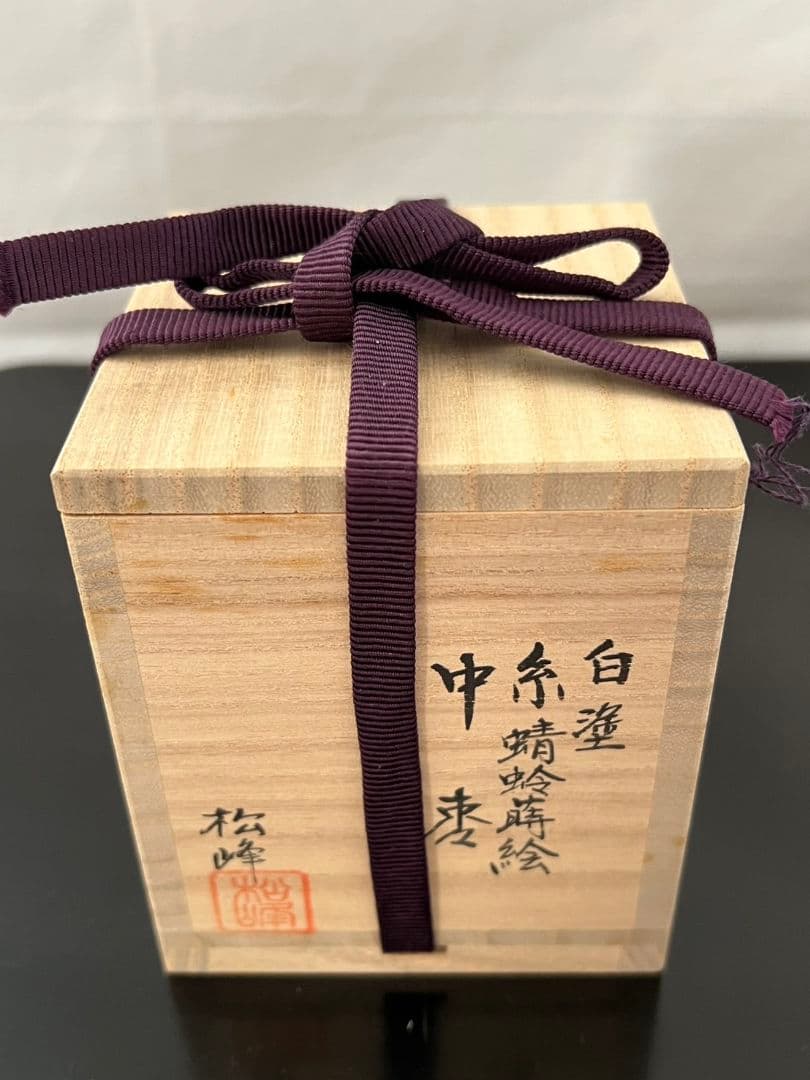 白塗
糸蜻蛉蒔絵
中棗
松峰
松峰